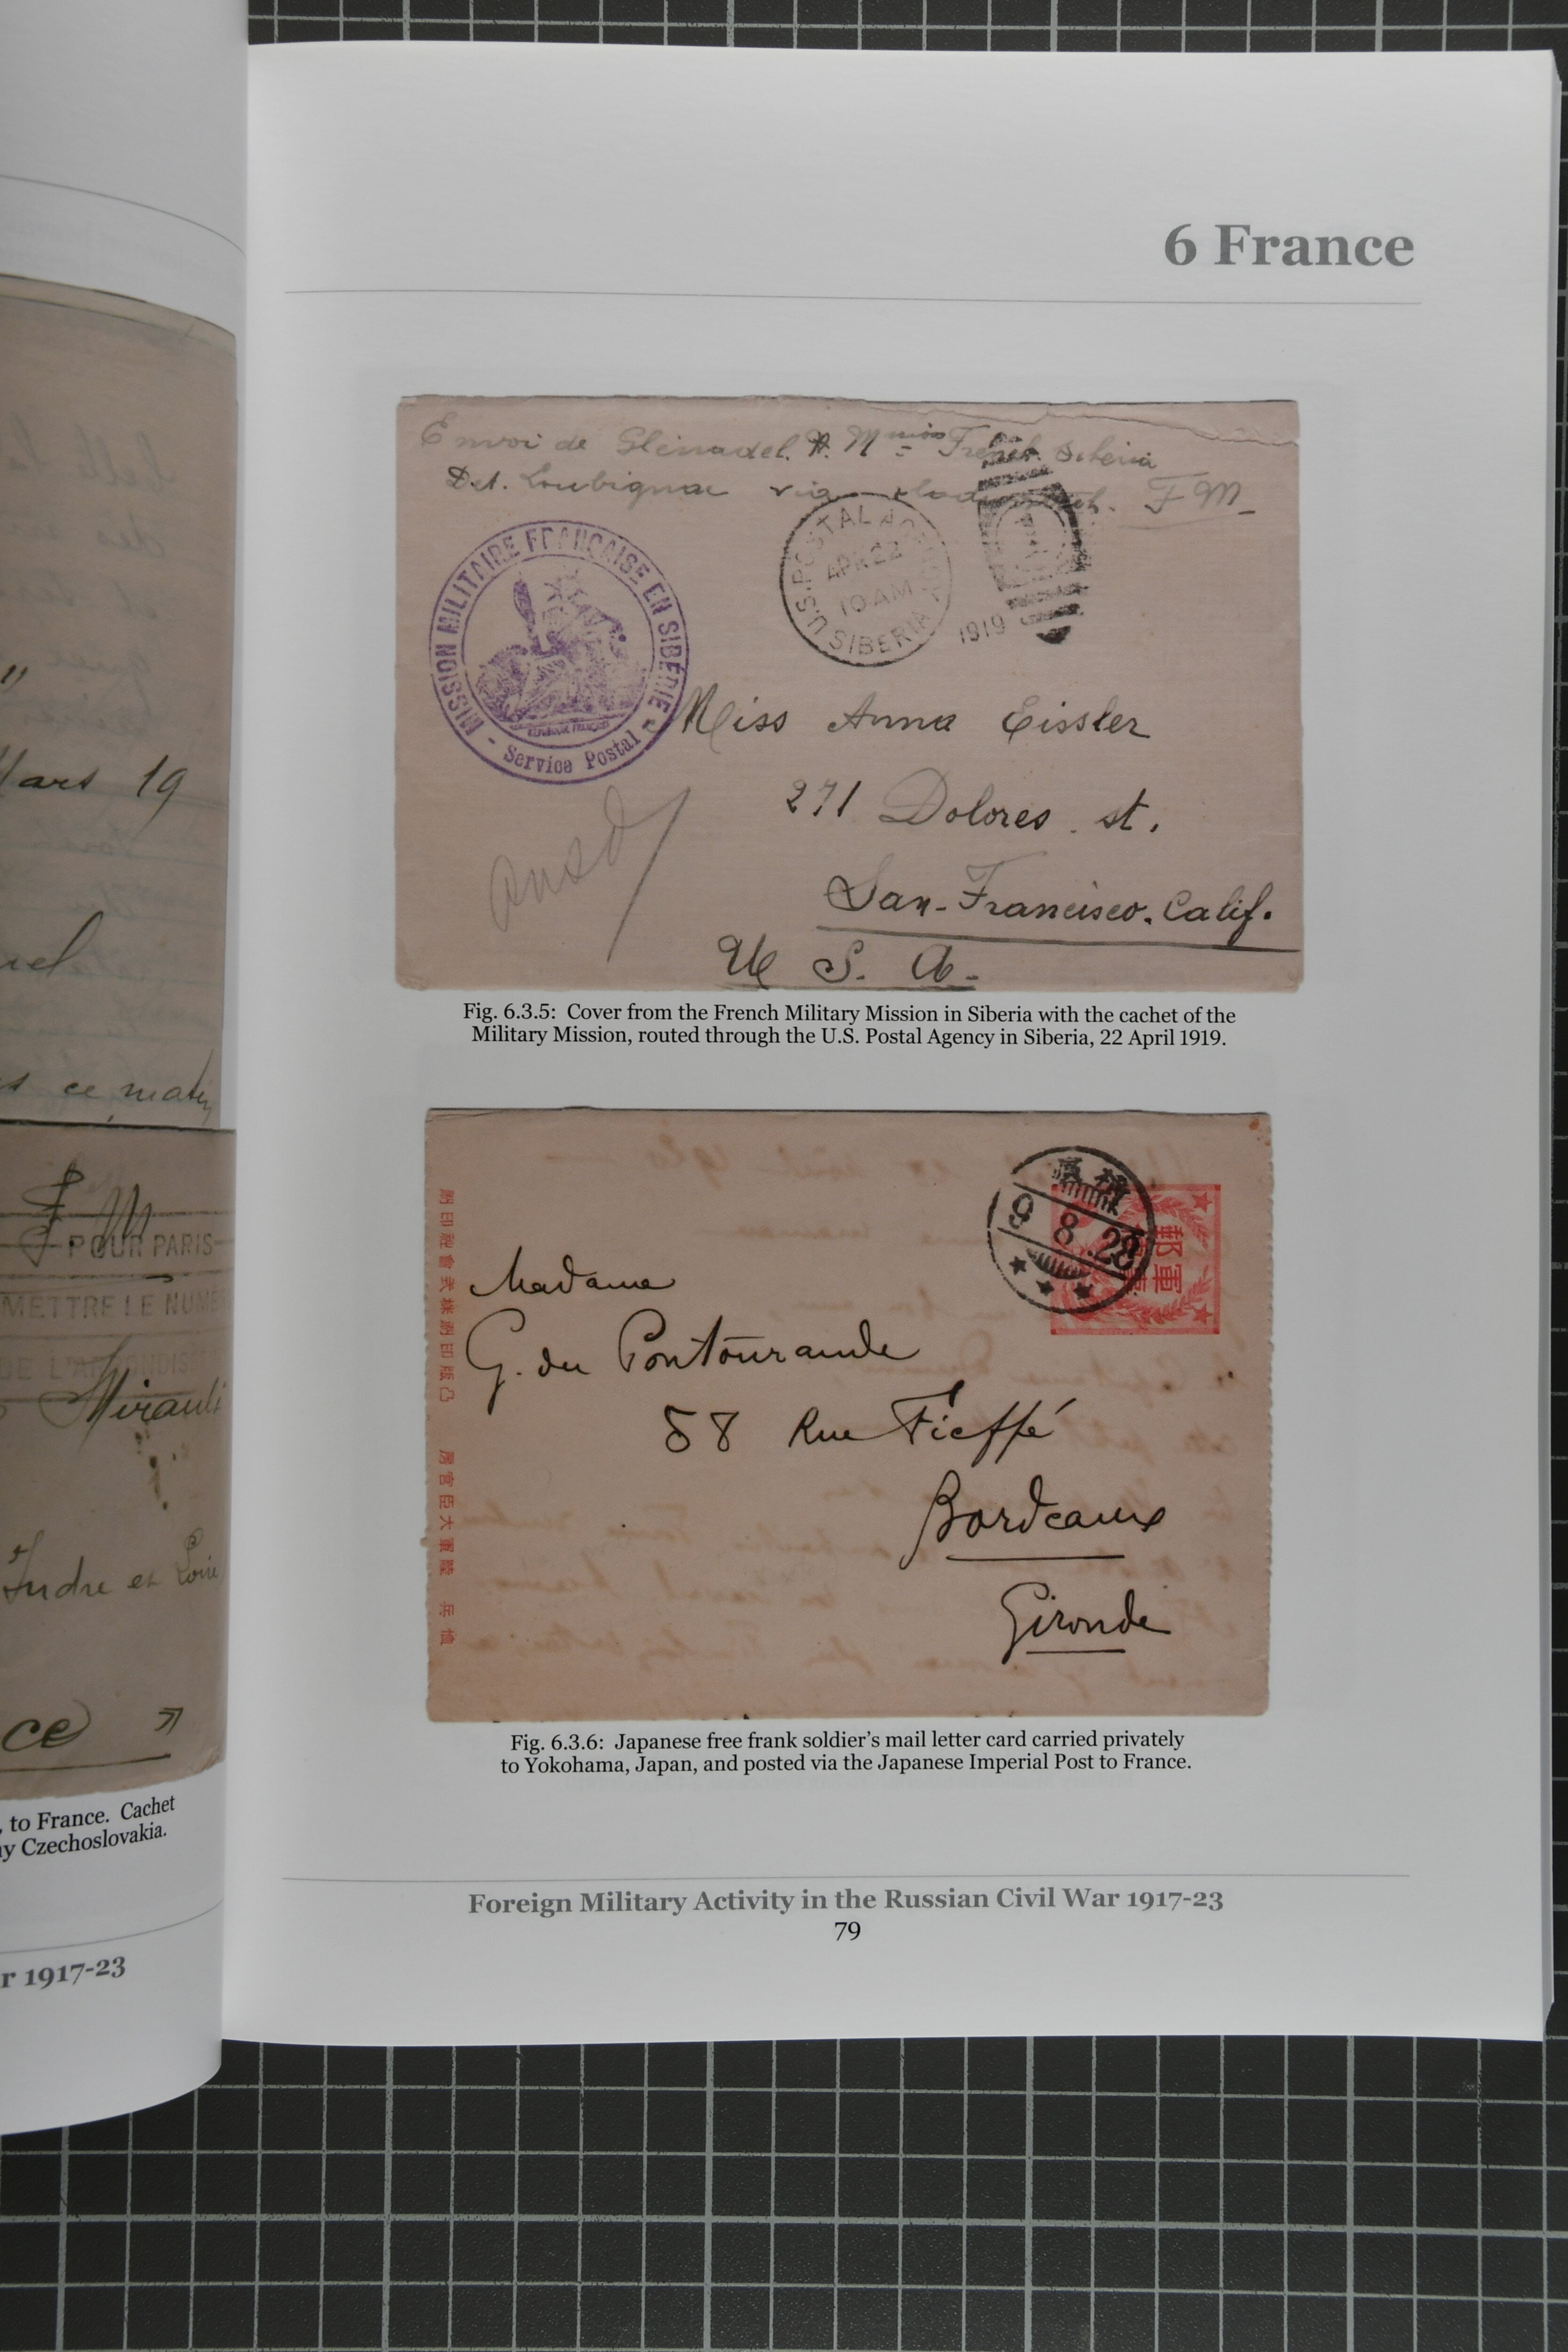 ars 19
ce matin
POUR PARIS
METTRE LE NUMÉ
DE L'ARRONDISS
Indre et Loire
ce »
, to France. Cachet
y Czechoslovakia.
r 1917-23
6 France
Envoi de Glinadel. Mmion French Siberia
Det. Loubignac via F M_
MISSION MILITAIRE FRANÇAISE EN SIBÉRIE
- Service Postal -
U.S. POSTAL AGENCY
APR 22
10 AM
SIBERIA
1919
Miss Anna Eissler
271 Dolores st.
San-Francisco. Calif.
U S. A.
ansd
Fig. 6.3.5: Cover from the French Military Mission in Siberia with the cachet of the
Military Mission, routed through the U.S. Postal Agency in Siberia, 22 April 1919.
9. 8. 28
軍
郵
Madame
G. du Pontouraude
58 Rue Fieffé
Bordeaux
Gironde
Fig. 6.3.6: Japanese free frank soldier's mail letter card carried privately
to Yokohama, Japan, and posted via the Japanese Imperial Post to France.
Foreign Military Activity in the Russian Civil War 1917-23
79